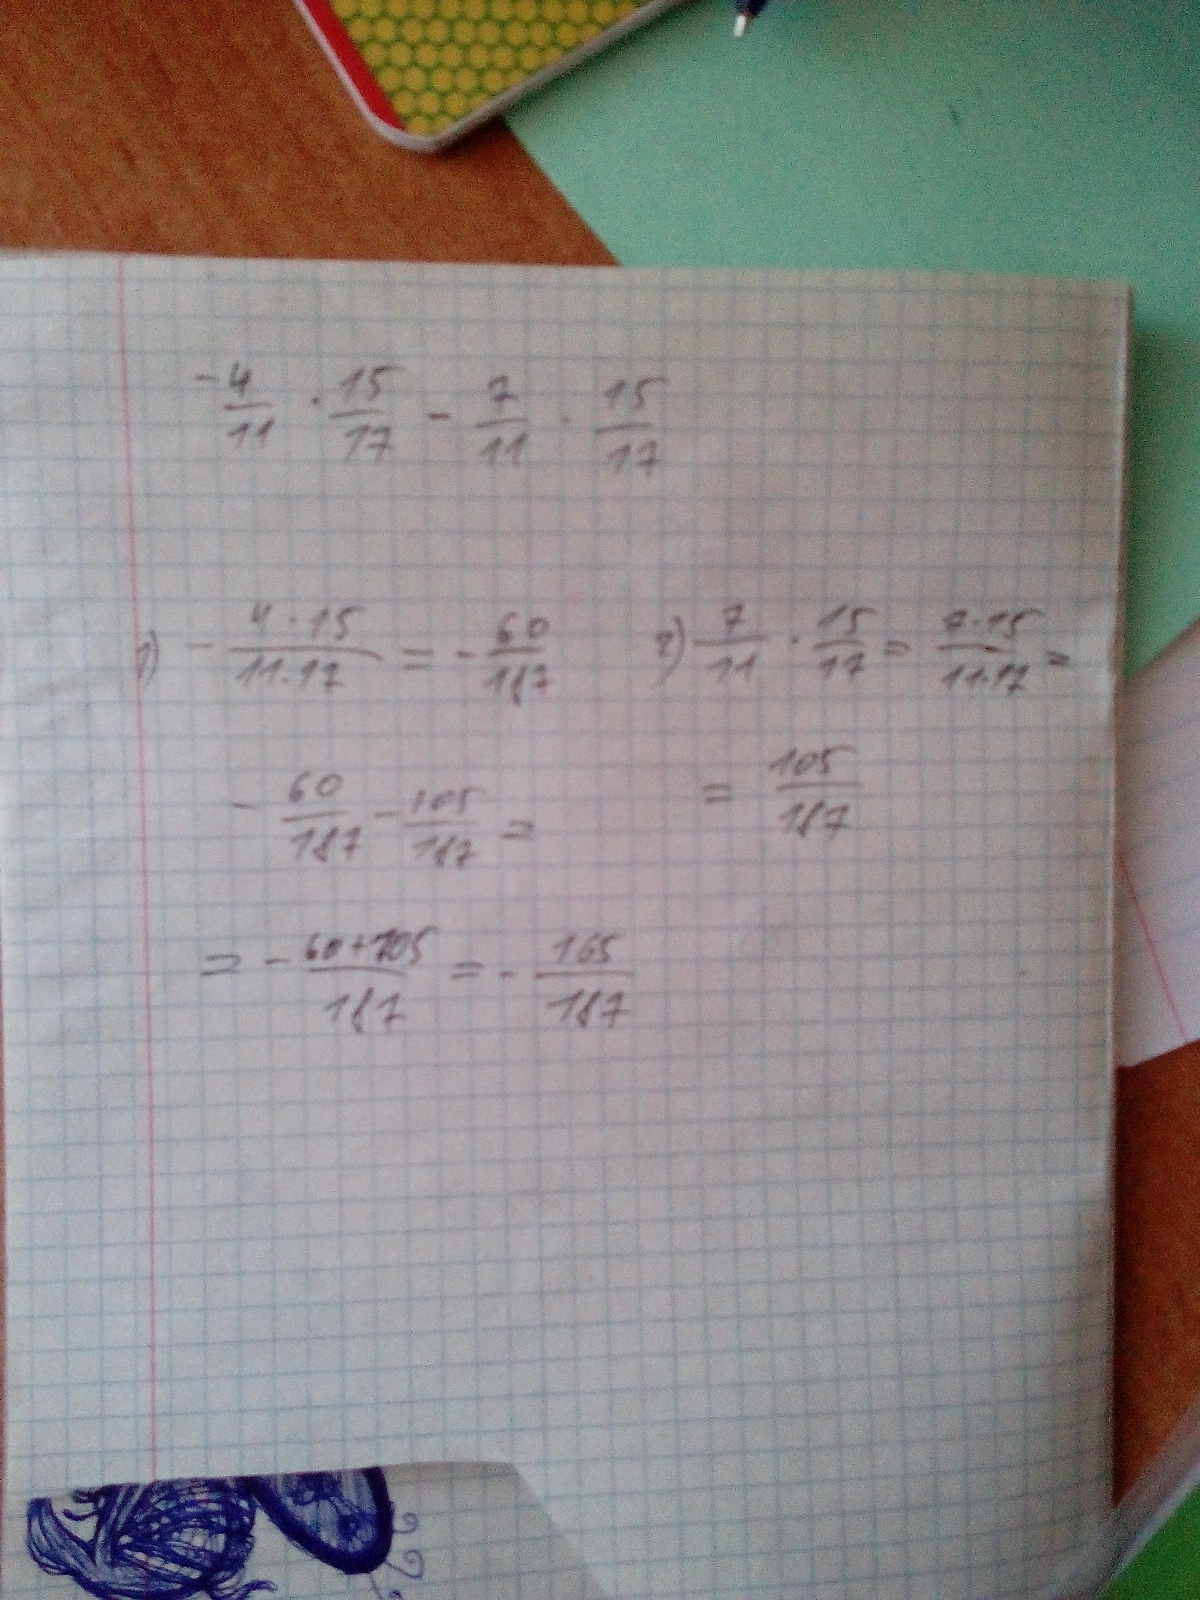 -4/11 · 15/17 - 7/11 · 15/17
1) - 4·15/11·17 = - 60/187
2) 7/11 · 15/17 = 7·15/11·17 =
= 105/187
- 60/187 - 105/187 =
= - 60+105/187 = - 165/187